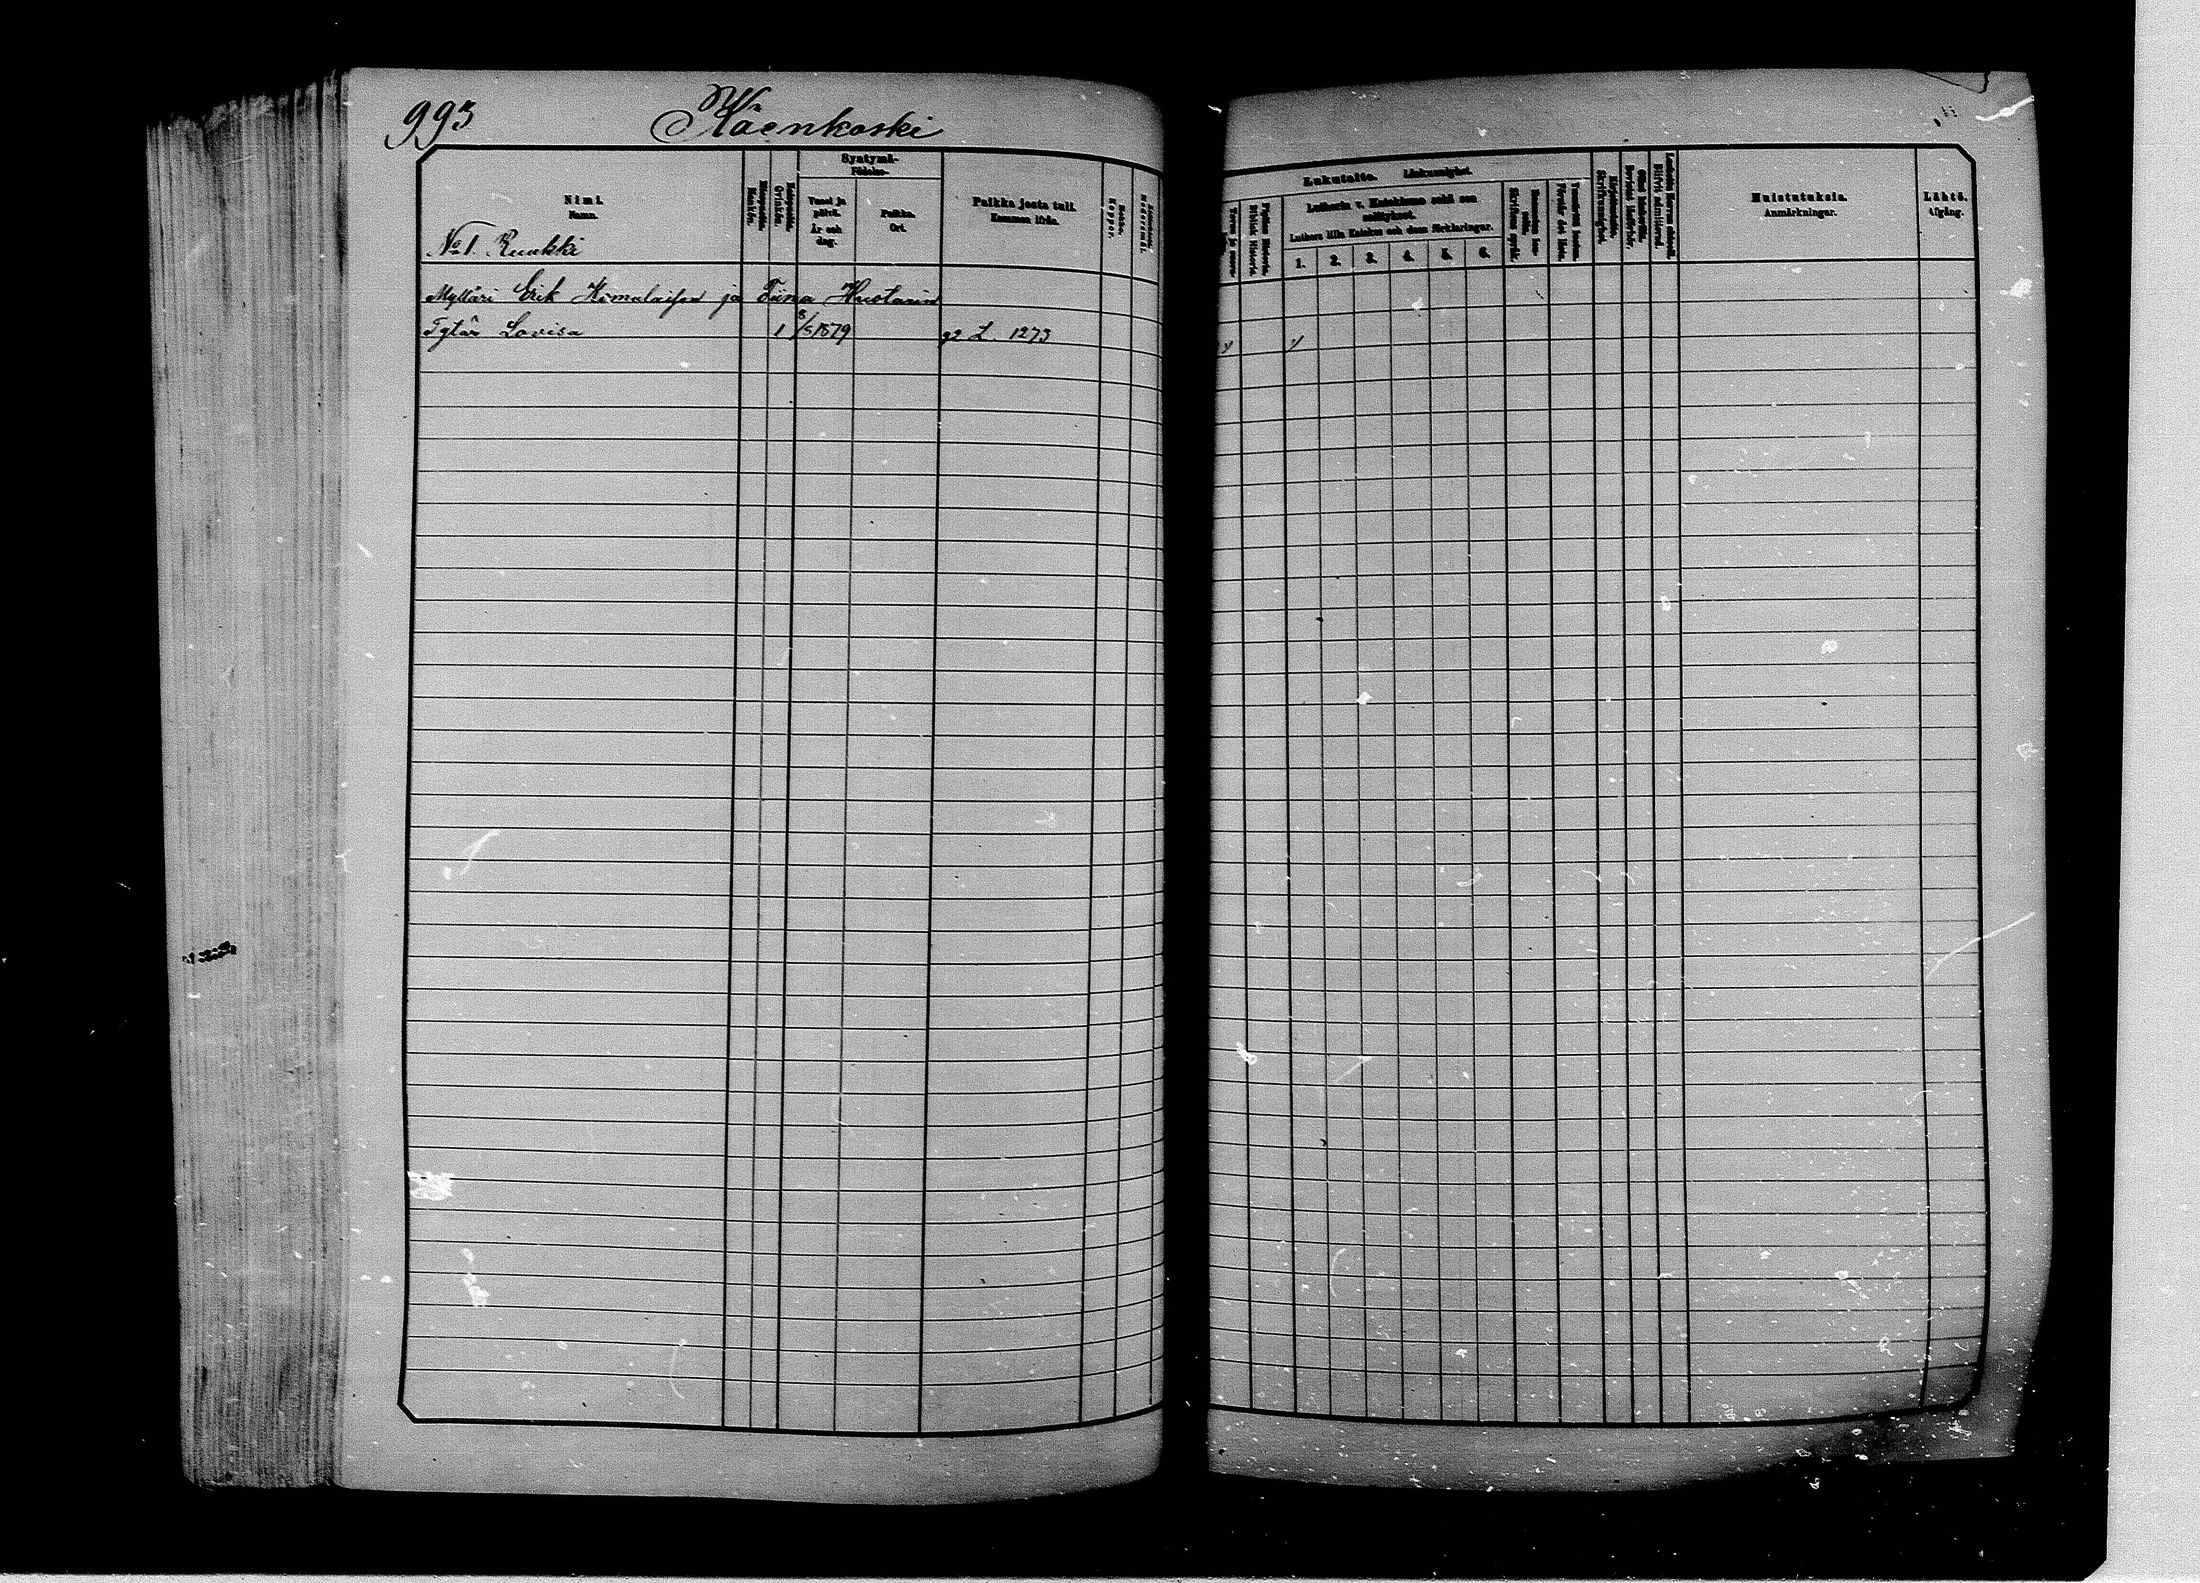 993
Käenkoski
Nimi.
Namn.
Miespuolta.
Mankön.
Naispuolta.
Qvinkön.
Syntymä-
Födelse-
Vuosi ja päivä.
År och dag.
Paikka.
Ort.
Paikka josta tuli.
Kommen ifrån.
Rokko.
Koppor.
No 1. Ruukki
Mylläri Erik Kimalaisen ja Tiina Huotarin
Tytär Lovisa 1 8/5 1879 92 L. 1273
Lukutaito. Läskunnighet.
Lutherin v. Katekismo sekä sen selitykset.
Luthers lilla Katekes och dess förklaringar.
1. 2. 3. 4. 5. 6.
Muistutuksia.
Anmärkningar.
Lähtö.
Afgång.